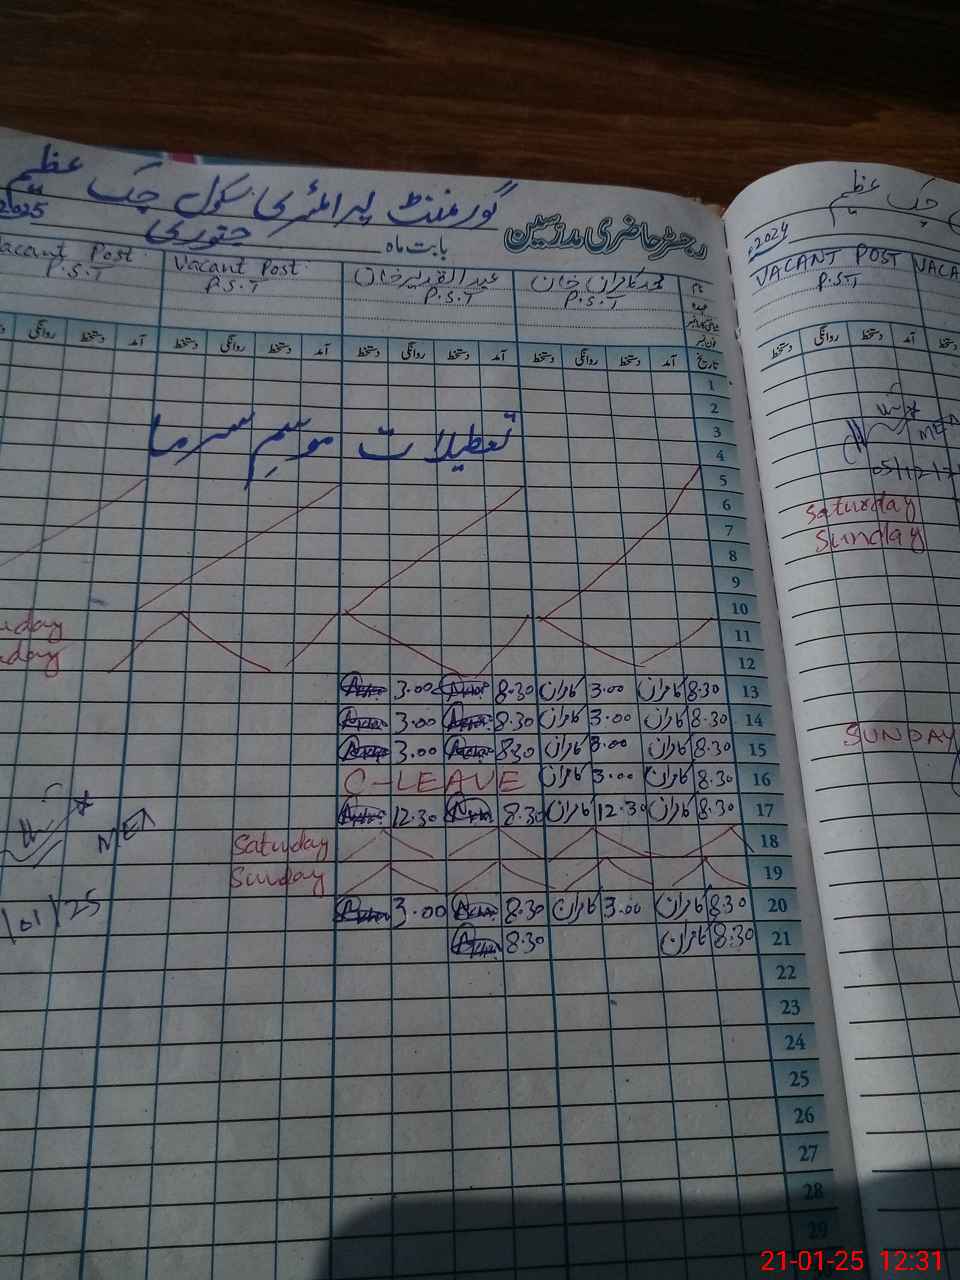 گورنمنٹ پرائمری سکول چک عظیم
رجسٹر حاضری مدرسین بابت ماہ جنوری 2025
نام محمد کامران خان عبدالقدیر خان Vacant Post Vacant Post
عہدہ P.S.T P.S.T P.S.T P.S.T
تاریخ آمد دستخط روانگی دستخط آمد دستخط روانگی دستخط آمد دستخط روانگی دستخط آمد دستخط روانگی
1
2
3
تعطیلات موسمِ سرما
4
5
6
7
8
9
10
11
12
13 8.30 کامران 3.00 کامران 8.30 3.00
14 8.30 کامران 3.00 کامران 8.30 3.00
15 8.30 کامران 3.00 کامران 8.30 3.00
16 8.30 کامران 3.00 کامران C-LEAVE
17 8.30 کامران 12.30 کامران 8.30 12.30
18 Saturday
19 Sunday
20 8.30 کامران 3.00 کامران 8.30 3.00
21 8.30 کامران 8.30
22
23
24
25
26
27
28
29
MEA
/01/25
چک عظیم
2024
VACANT POST VACA
P.S.T
دستخط روانگی دستخط آمد
MEA
05/12/
Saturday
Sunday
SUNDAY
21-01-25 12:31